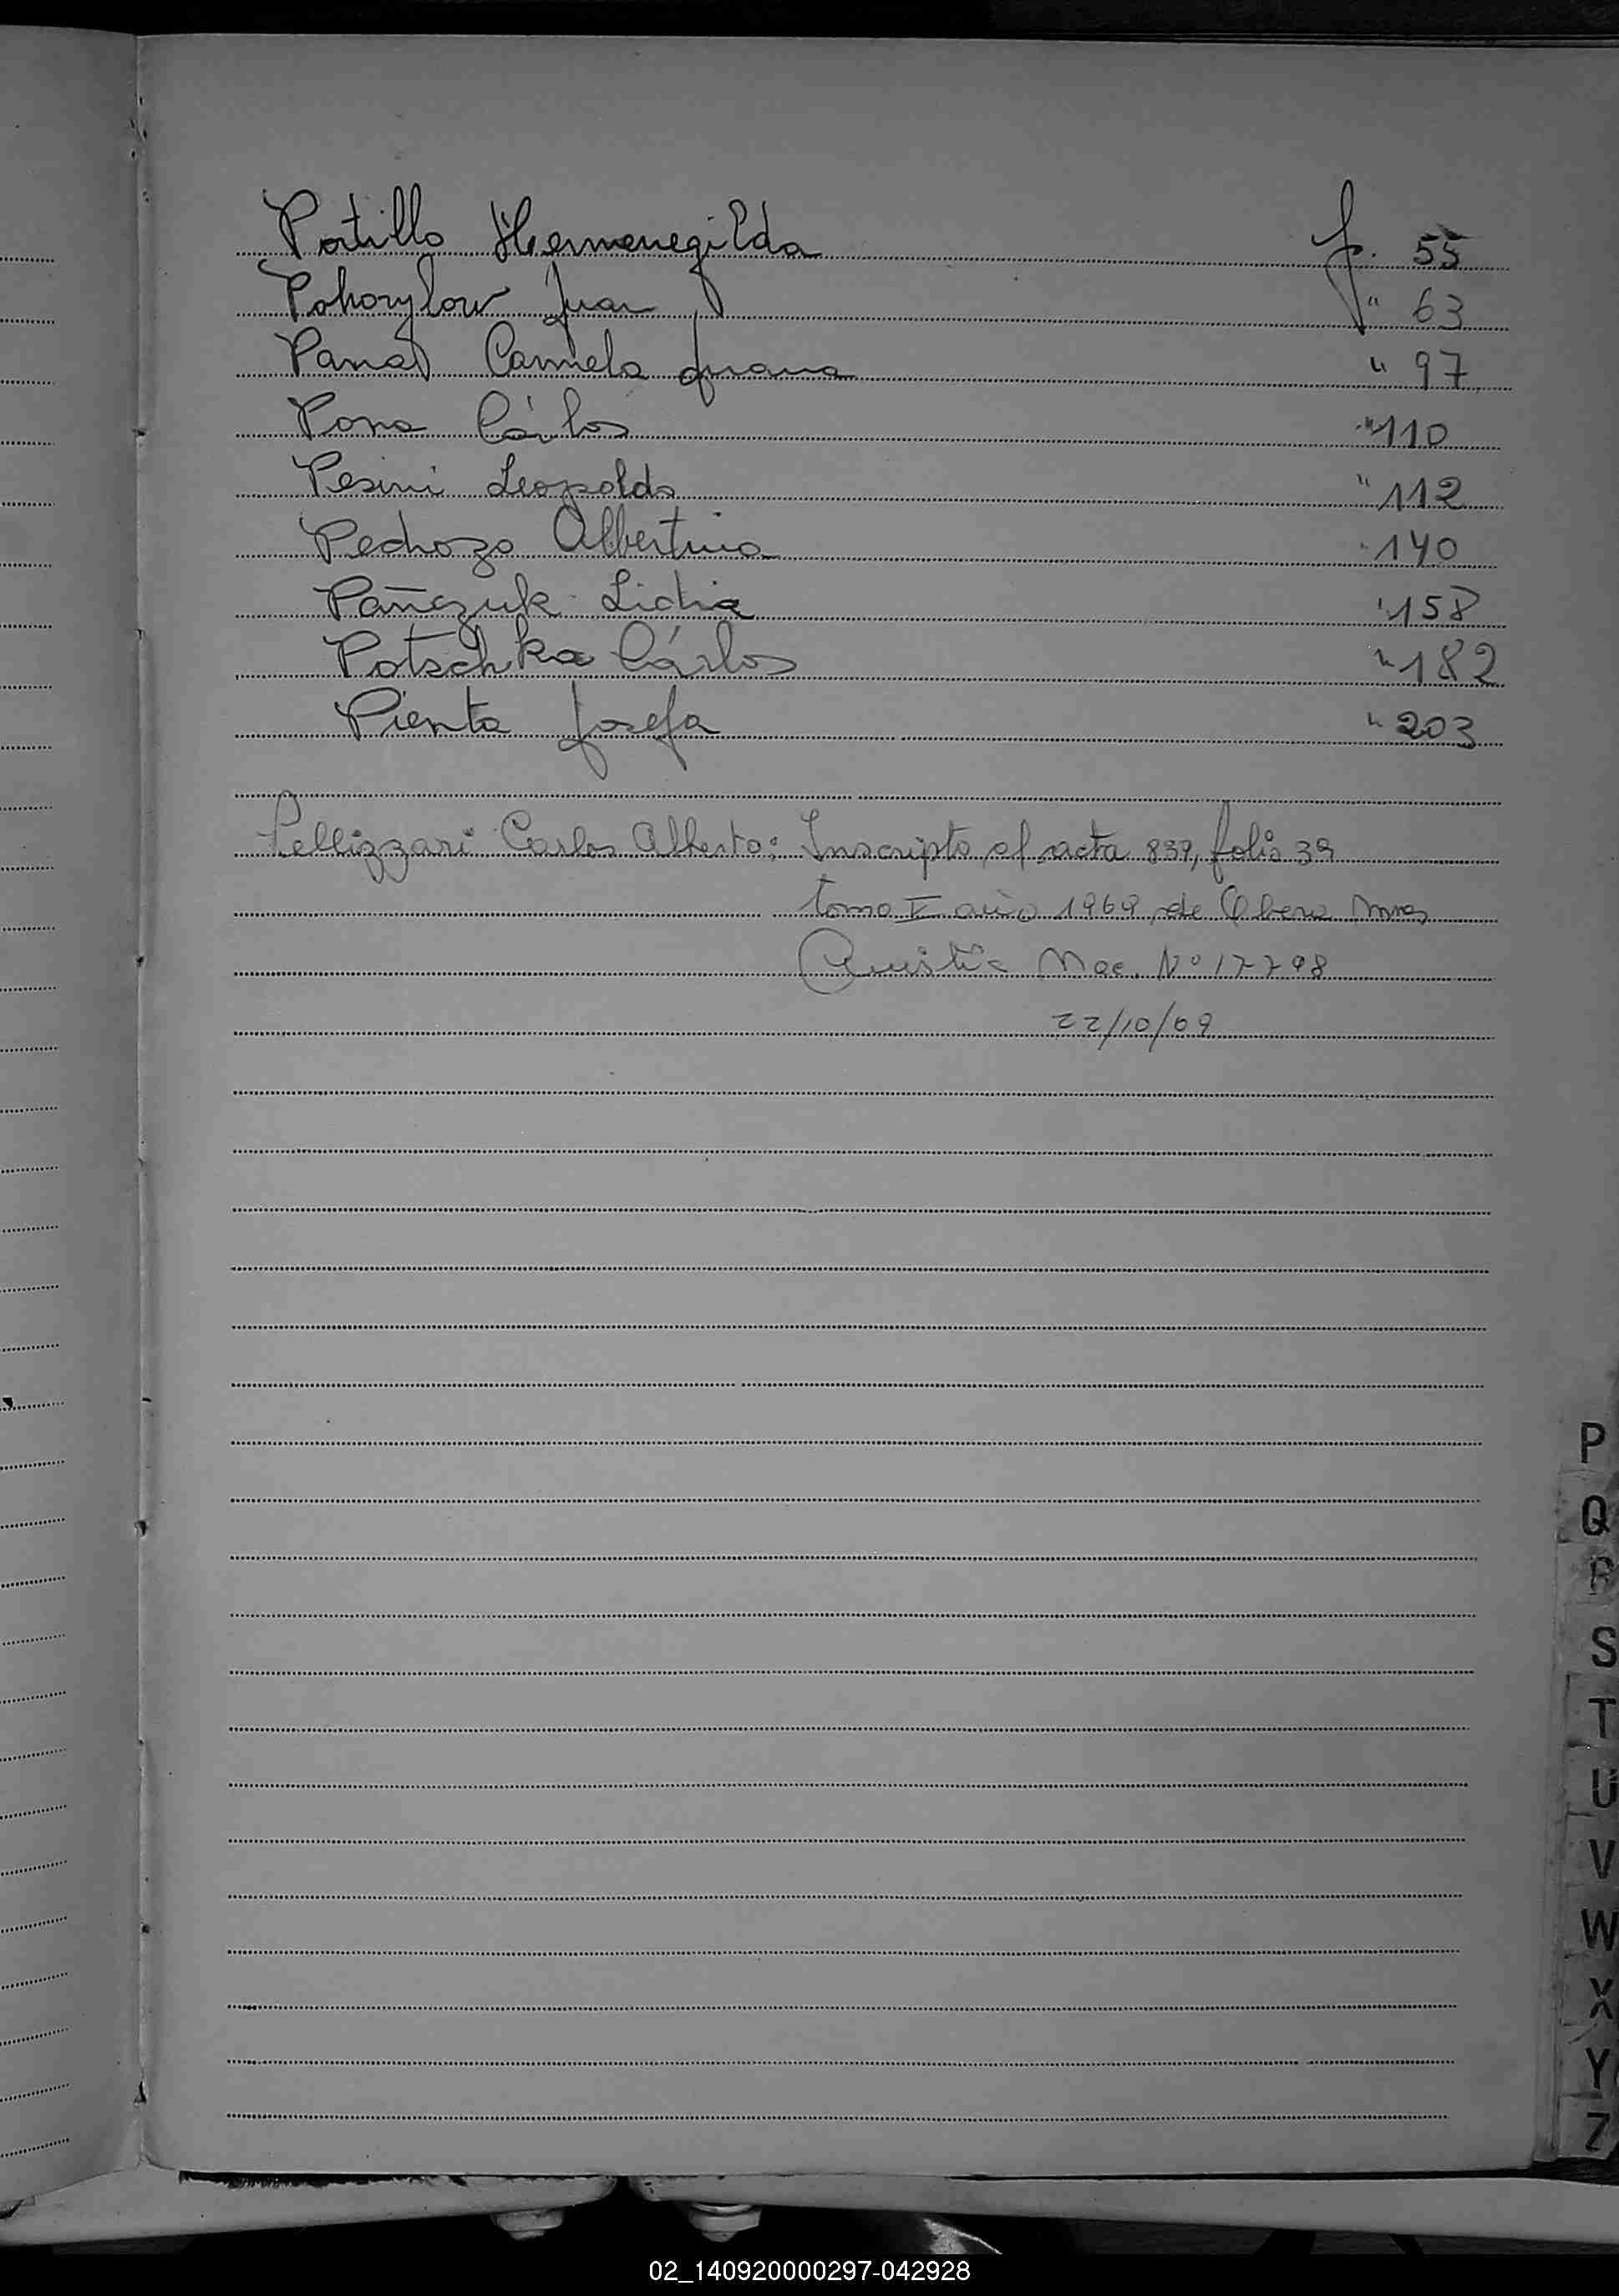 Portillo Hermenegilda f. 55
Pohorylow Juan " 63
Carmela Juana " 97
Carlos " 110
Pesini Leopoldo " 112
Pedrozo Albertina " 140
Pañczuk Lidia " 158
Potschka Cárlos " 182
Pienta Josefa " 203
Pellizzari Carlos Alberto: Inscripto al acta 839, folio 39
tomo V año 1969, de Obera Mnes
Nac. Nº 17798
22/10/69
P
Q
R
S
T
U
V
W
X
Y
Z
02_140920000297-042928